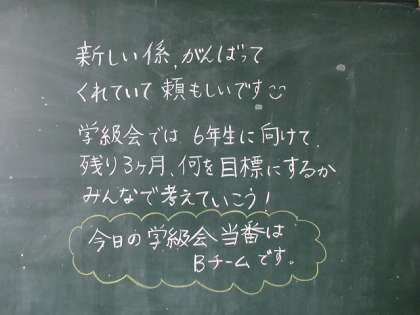 新しい係,がんばって
くれていて頼もしいです
学級会では 6年生に向けて、
残り3ヶ月、何を目標にするか
みんなで考えていこう!
今日の学級会当番は
Bチームです。